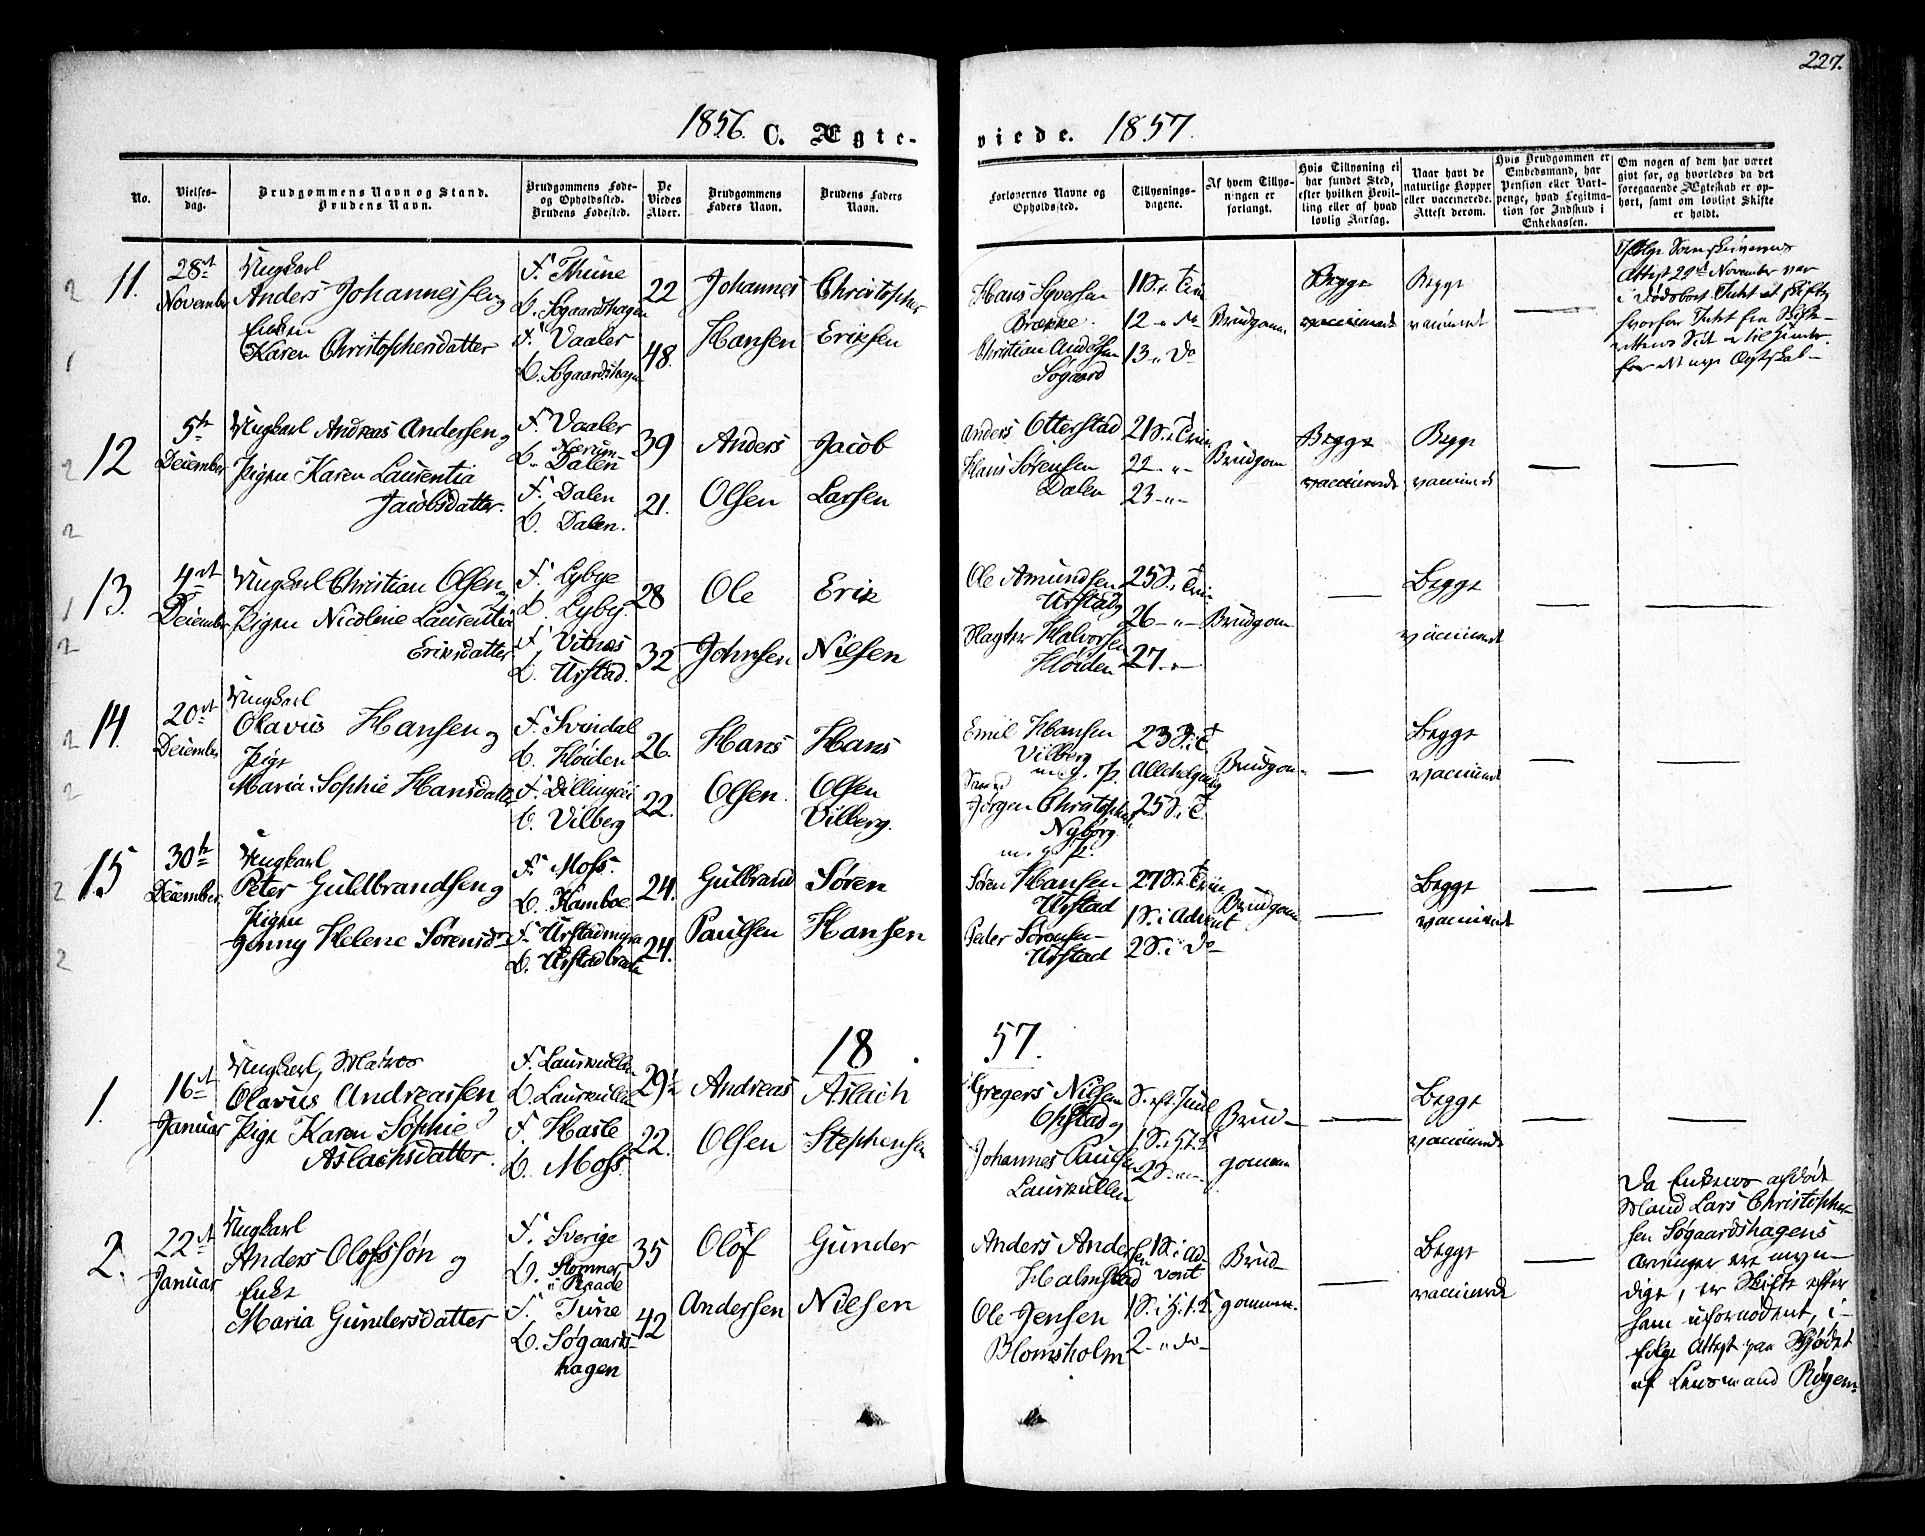 227.
1856. C. Ægte-
viede. 1857.
No.
Vielses-
dag.
Brudgommens Navn og Stand.
Brudens Navn.
Brudgommens Føde-
og Opholdssted.
Brudens Fødested.
De
Viedes
Alder.
Brudgommens
Faders Navn.
Brudens Faders
Navn.
Forlovernes Navne og
Opholdssted.
Tillysnings-
dagene.
Af hvem Tillys-
ningen er
forlangt.
Hvis Tillysning ei
har fundet Sted,
efter hvilken Bevil-
ling eller af hvad
lovlig Aarsag.
Naar havt de
naturlige Kopper
eller vaccinerede.
Attest derom.
Hvis Brudgommen er
Embedsmand, har
Pension eller Vart-
penge, hvad Legitima-
tion for Indskud i
Enkekassen.
Om nogen af dem har været
givt før, og hvorledes da det
foregaaende Ægteskab er op-
hørt, samt om lovligt Skifte
er holdt.
11.
28de
November
Ungkarl
Anders Johannessen og
Enken
Karen Christophersdatter
F. Thune
O. Søgaardshagen
F. Vaaler
O. Søgaardshagen
22
48.
Johannes
Hansen
Christopher
Eriksen
Hans Syversen
Brække.
Christian Andersen
Søgaard
11 S. e. Trin
12 - " do
13 " do
Brudgom
Begge
vaccinerede
Begge
vaccineret
12
5te
December
Ungkarl Andreas Andersen og
Pigen Karen Laurentia
Jacobsdatter.
F. Vaaler
O. Nærum-
Dalen
F. Dalen
O. Dalen.
39
21.
Anders
Olsen
Jacob
Larsen
Anders Otterstad
Hans Sørensen
Dalen
21 S. e. Trin
22 - " -
23 - " -
Brudgom
Begge
vaccinerede
Begge
vaccineret
13.
4de
December
Ungkarl Christian Olsen og
Pigen Nicoline Laurentia
Eriksdatter
F. Lybye
O. Lyby.
F. Vitnæs
O. Urstad.
28
32
Ole
Johnsen
Erik
Nielsen
Ole Amundsen
Urstad og
Halvorsen
Høiden
25 S. e. Trin.
26 - " -
27 - " -
Brudgom
Begge
vaccineret
14.
20de
December
Ungkarl
Olavus Hansen og
Pige
Maria Sophie Hansdatter
F. Svindal
O. Høiden
F. Dillingøi
O. Vilberg
26.
22.
Hans
Olsen.
Hans
Olsen
Vilberg.
Emil Hansen
Vilberg
m. f. P.
Jørgen Christophersen
Nyborg
m. f. P.
23 S. e. T.
Allehelgendag
25 S. e. T.
Brudgom
Begge
vaccineret
15
30te
December
Ungkarl
Peter Guldbrandsen og
Pigen
Jenny Helene Sørensdr
F. Moss.
O. Kamboe
F. Urstadmyra
O. Urstadbraaten
24.
24.
Gulbrand
Paulsen
Søren
Hansen
Søren Hansen
Urstad
Peder Sørensen-
Urstad
27 S. e. Trin
1 S. i Advent
2 S. i do
Brudgom
Begge
vaccineret
18 57.
1.
16de
Januar
Ungkarl, Matros
Olavus Andreassen
og
Pige Karen Sophie
Aslachsdatter.
F. Laurkullen
O. Laurkullen
F. Hasle
O. Moss.
29½
22.
Andreas
Olsen
Aslach
Stephensen
Gregers Nilsen
Opstad og
Johannes Paulsen
Laurkullen
S. eft. Juul
Brud-
gommen
Begge
vaccinerede
2.
22de
Januar
Ungkarl
Anders Olofssøn og
Enke
Maria Gundersdatter
F. Sverige
O. Kornnes
i Raade
F. Tune
O. Søgaards-
hagen
35
42
Olof
Andersen
Gunder
Nielsen
Anders Andersen
Halmstad
Ole Jensen
Blomsholm
1 S. i Ad-
vent
2 - " do
Brud-
gommen.
Begge
vaccinerede
Da Enkens afdøde
Mand Lars Christopher-
sen Søgaardshagens
Arvinger ere myn-
dige, er Skifte efter
ham ufornødent, i-
følge Attest paa Skjødet
af Lensmand Rygem